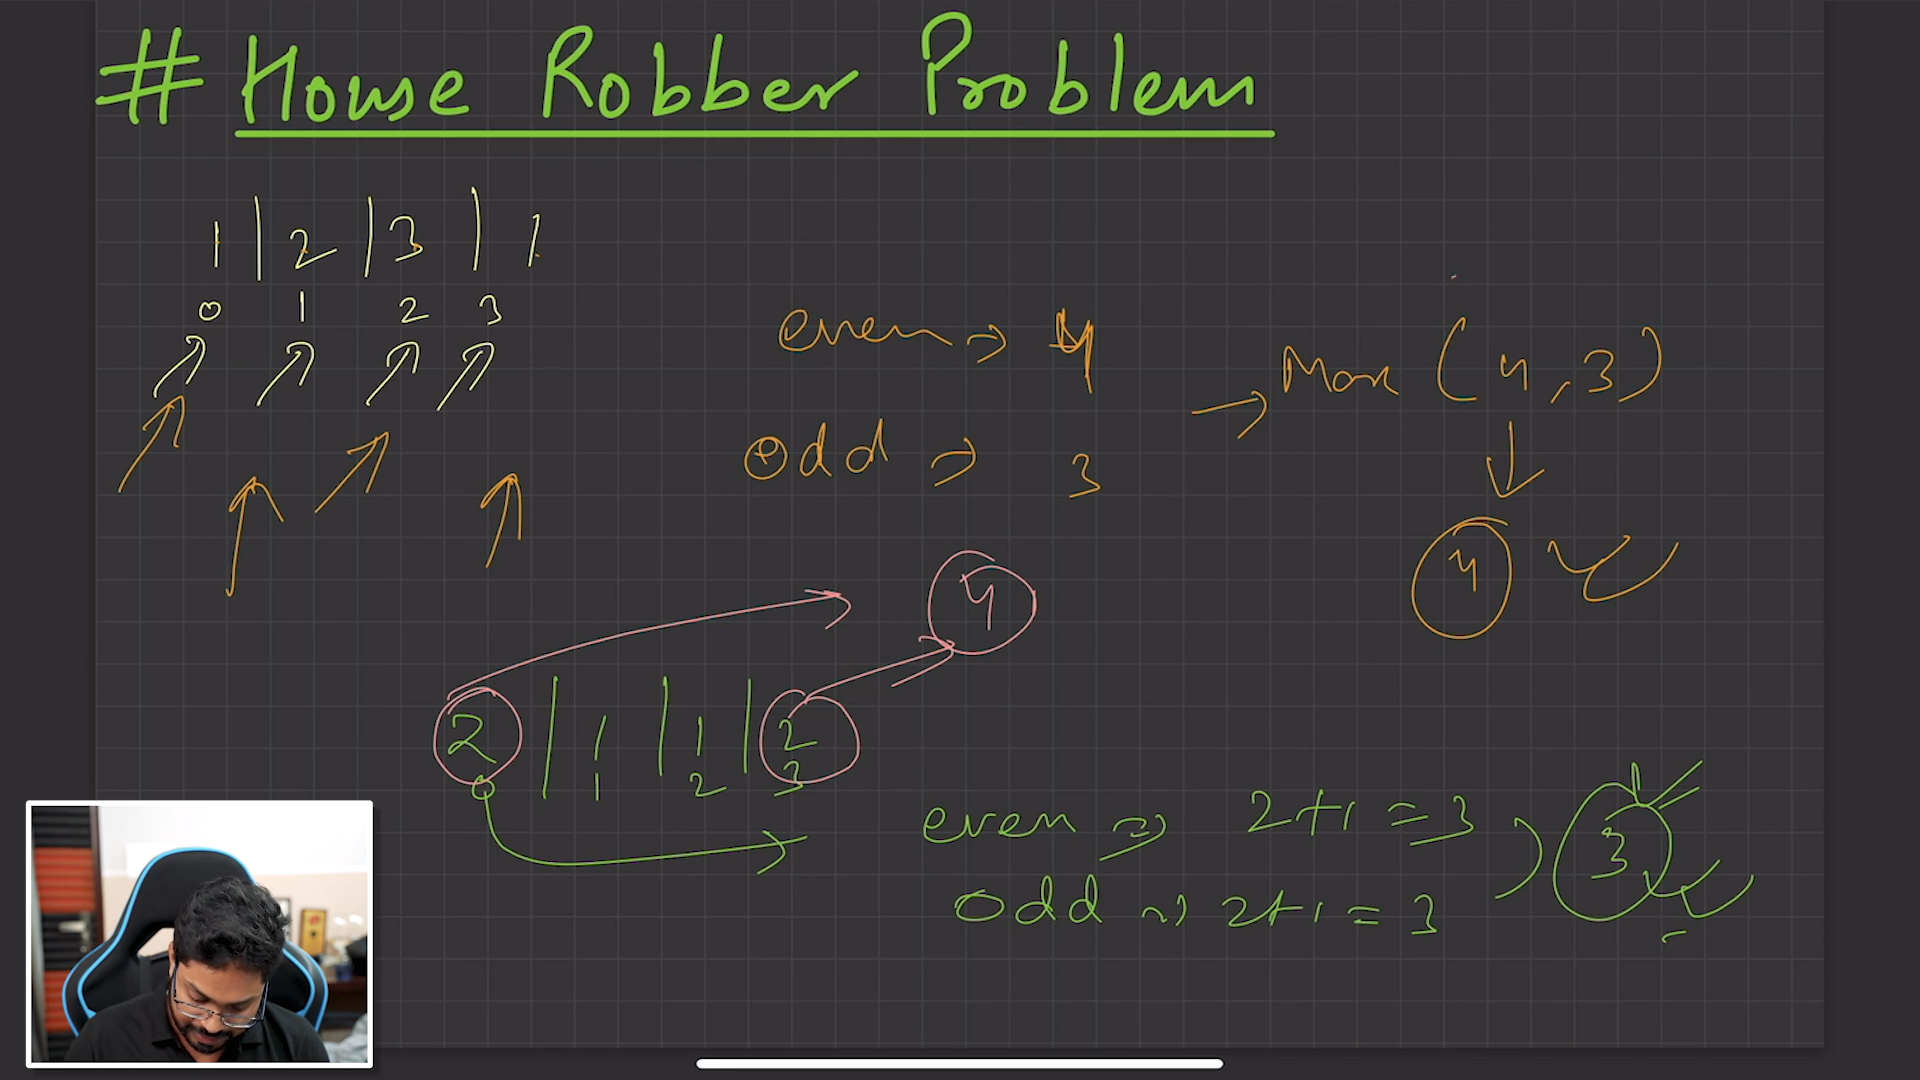 # House Robber Problem
1 | 2 | 3 | 1
0 1 2 3
even => 4
odd => 3
→ Max (4, 3)
4
4
2 | 1 | 1 | 2
0 1 2 3
even => 2+1 = 3
odd => 2+1 = 3
3